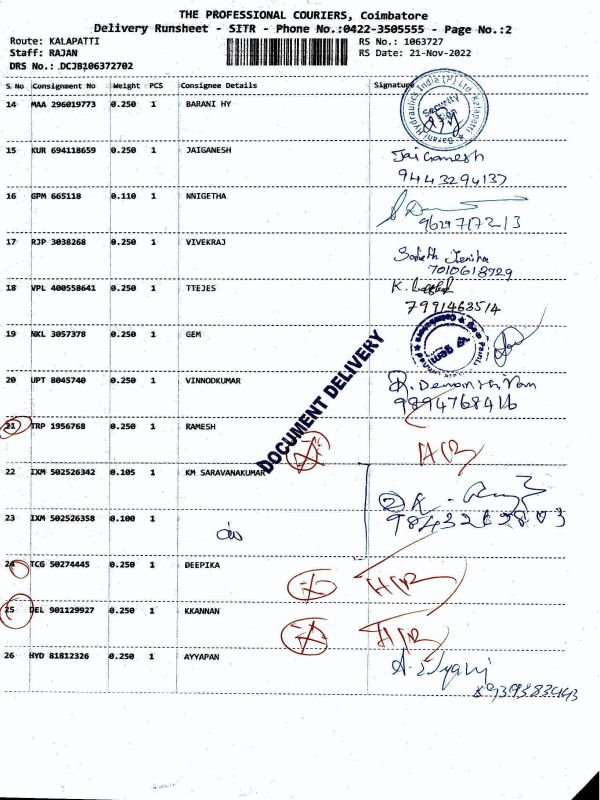 THE PROFESSIONAL COURIERS, Coimbatore
Delivery Runsheet - SITR - Phone No.:0422-3505555 - Page No.:2
Route: KALAPATTI RS No.: 1063727
Staff: RAJAN RS Date: 21-Nov-2022
DRS No.: .DCJB106372702
S No Consignment No Weight PCS Consignee Details Signature
14 MAA 296019773 0.250 1 BARANI HY
Barani Hydraulics India (P) Ltd. Kalapatti
Security
15 KUR 694118659 0.250 1 JAIGANESH Jai Ganesh
9443294137
16 GPM 665118 0.110 1 NNIGETHA
9629717213
17 RJP 3038268 0.250 1 VIVEKRAJ
7010618729
18 VPL 400558641 0.250 1 TTEJES K.
7991463514
19 NKL 3057378 0.250 1 GEM
gem
20 UPT 8045740 0.250 1 VINNODKUMAR
9894768416
DOCUMENT DELIVERY
21 TRP 1956768 0.250 1 RAMESH
22 IXM 502526342 0.105 1 KM SARAVANAKUMAR
23 IXM 502526358 0.100 1
24 TCG 50274445 0.250 1 DEEPIKA
25 DEL 901129927 0.250 1 KKANNAN
26 HYD 81812326 0.250 1 AYYAPAN